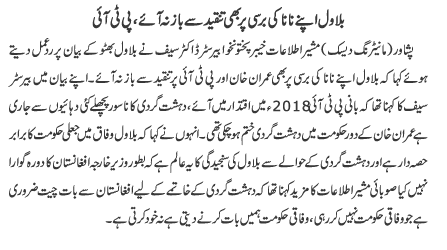 بلاول اپنے نانا کی برسی پر بھی تنقید سے باز نہ آئے، پی ٹی آئی
پشاور (مانیٹرنگ ڈیسک) مشیر اطلاعات خیبر پختونخوا بیرسٹر ڈاکٹر سیف نے بلاول بھٹو کے بیان پر ردعمل دیتے
ہوئے کہا کہ بلاول اپنے نانا کی برسی پر بھی عمران خان اور پی ٹی آئی پر تنقید سے باز نہ آئے۔ اپنے بیان میں بیرسٹر
سیف کا کہنا تھا کہ بانی پی ٹی آئی 2018ء میں اقتدار میں آئے، دہشت گردی کا ناسور پچھلے کئی دہائیوں سے جاری
ہے عمران خان کے دور حکومت میں دہشت گردی ختم ہو چکی تھی۔ انہوں نے کہا کہ بلاول وفاق میں جعلی حکومت کا برابر
حصہ دار ہے اور دہشت گردی کے حوالے سے بلاول کی سنجیدگی کا یہ عالم ہے کہ بطور وزیر خارجہ افغانستان کا دورہ گوارا
نہیں کیا صوبائی مشیر اطلاعات کا مزید کہنا تھا کہ دہشت گردی کے خاتمے کے لیے افغانستان سے بات چیت ضروری
ہے جو وفاقی حکومت نہیں کر رہی، وفاقی حکومت ہمیں بات کرنے دیتی ہے نہ خود کرتی ہے۔